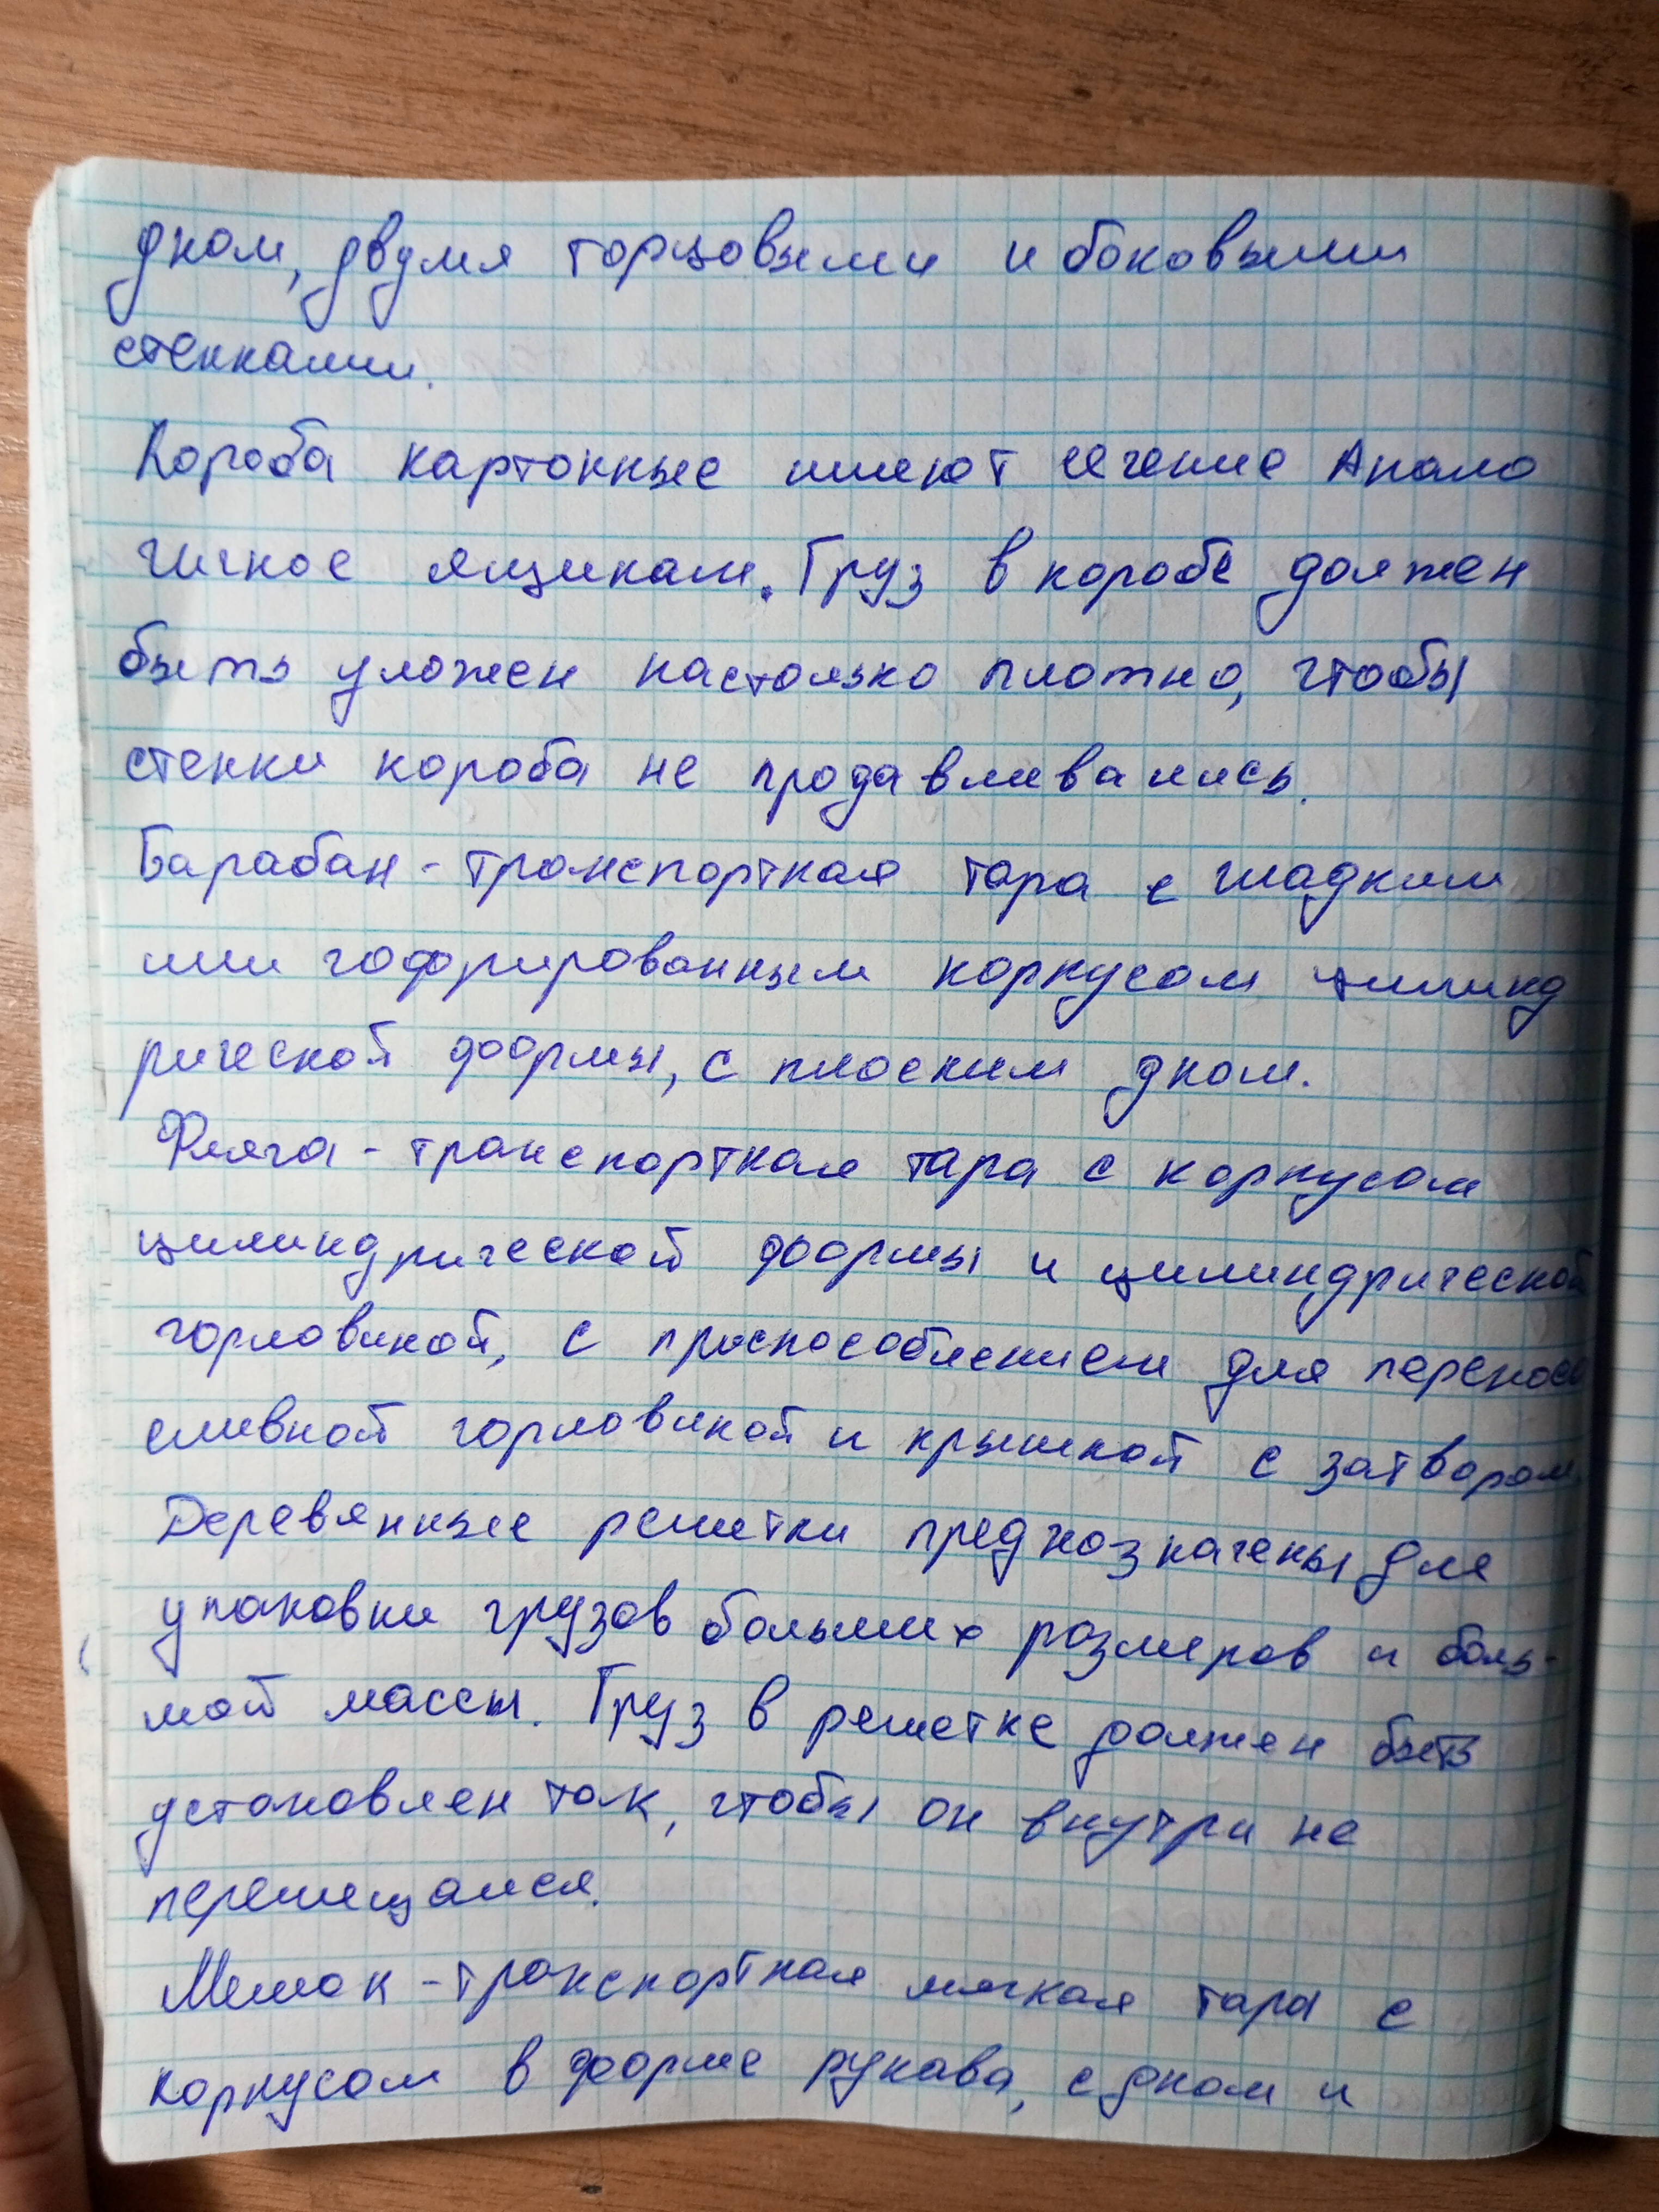 дном, двумя торцовыми и боковыми
стенками.
Короба картонные имеют сечение Анало
гичное ящикам. Груз в коробе должен
быть уложен настолько плотно, чтобы
стенки короба не продавливались.
Барабан - транспортная тара с гладким
или гофрированным корпусом цилинд
рической формы, с плоским дном.
Фляга - транспортная тара с корпусом
цилиндрической формы и цилиндрической
горловиной, с приспособлением для переноса
сливной горловиной и крышкой с затвором.
Деревянные решетки предназначены для
упаковки грузов больших размеров и боль-
шой массы. Груз в решетке должен быть
установлен так, чтобы он внутри не
перемещался.
Мешок - транспортная мягкая тара с
корпусом в форме рукава, с дном и